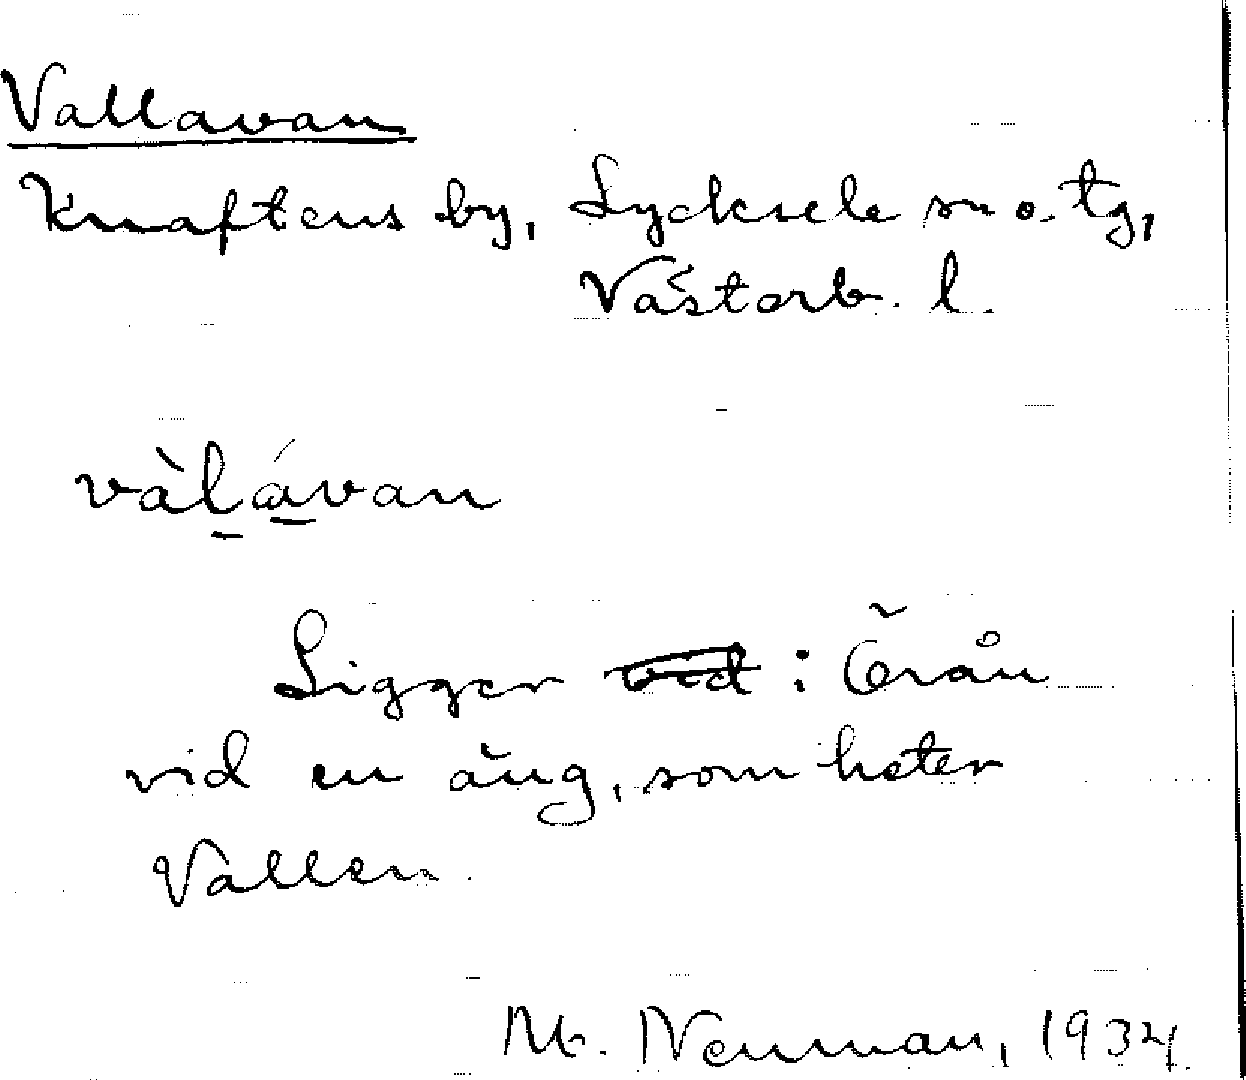 Vallavan
Knaftens by, Lycksele sn o. tg,
Västerb. l.
vàl̠á̠van
Ligger vid i Örån
vid en äng, som heter
Vallen.
M. Neuman, 1934.